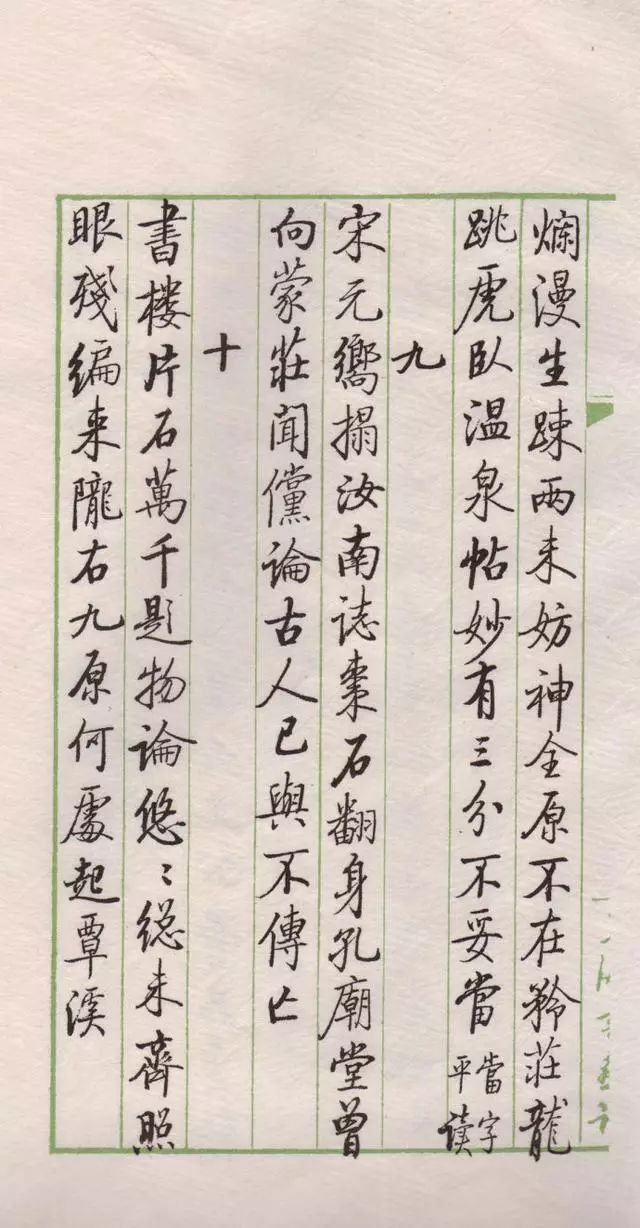 爛漫生疎兩未妨神全原不在矜莊龍
跳虎臥温泉帖妙有三分不妥當 當字平讀
九
宋元嚮搨汝南誌棗石翻身孔廟堂曾
向蒙莊聞儻論古人已與不傳亡
十
書楼片石萬千題物論悠〻總未齊照
眼殘編来隴右九原何處起覃溪